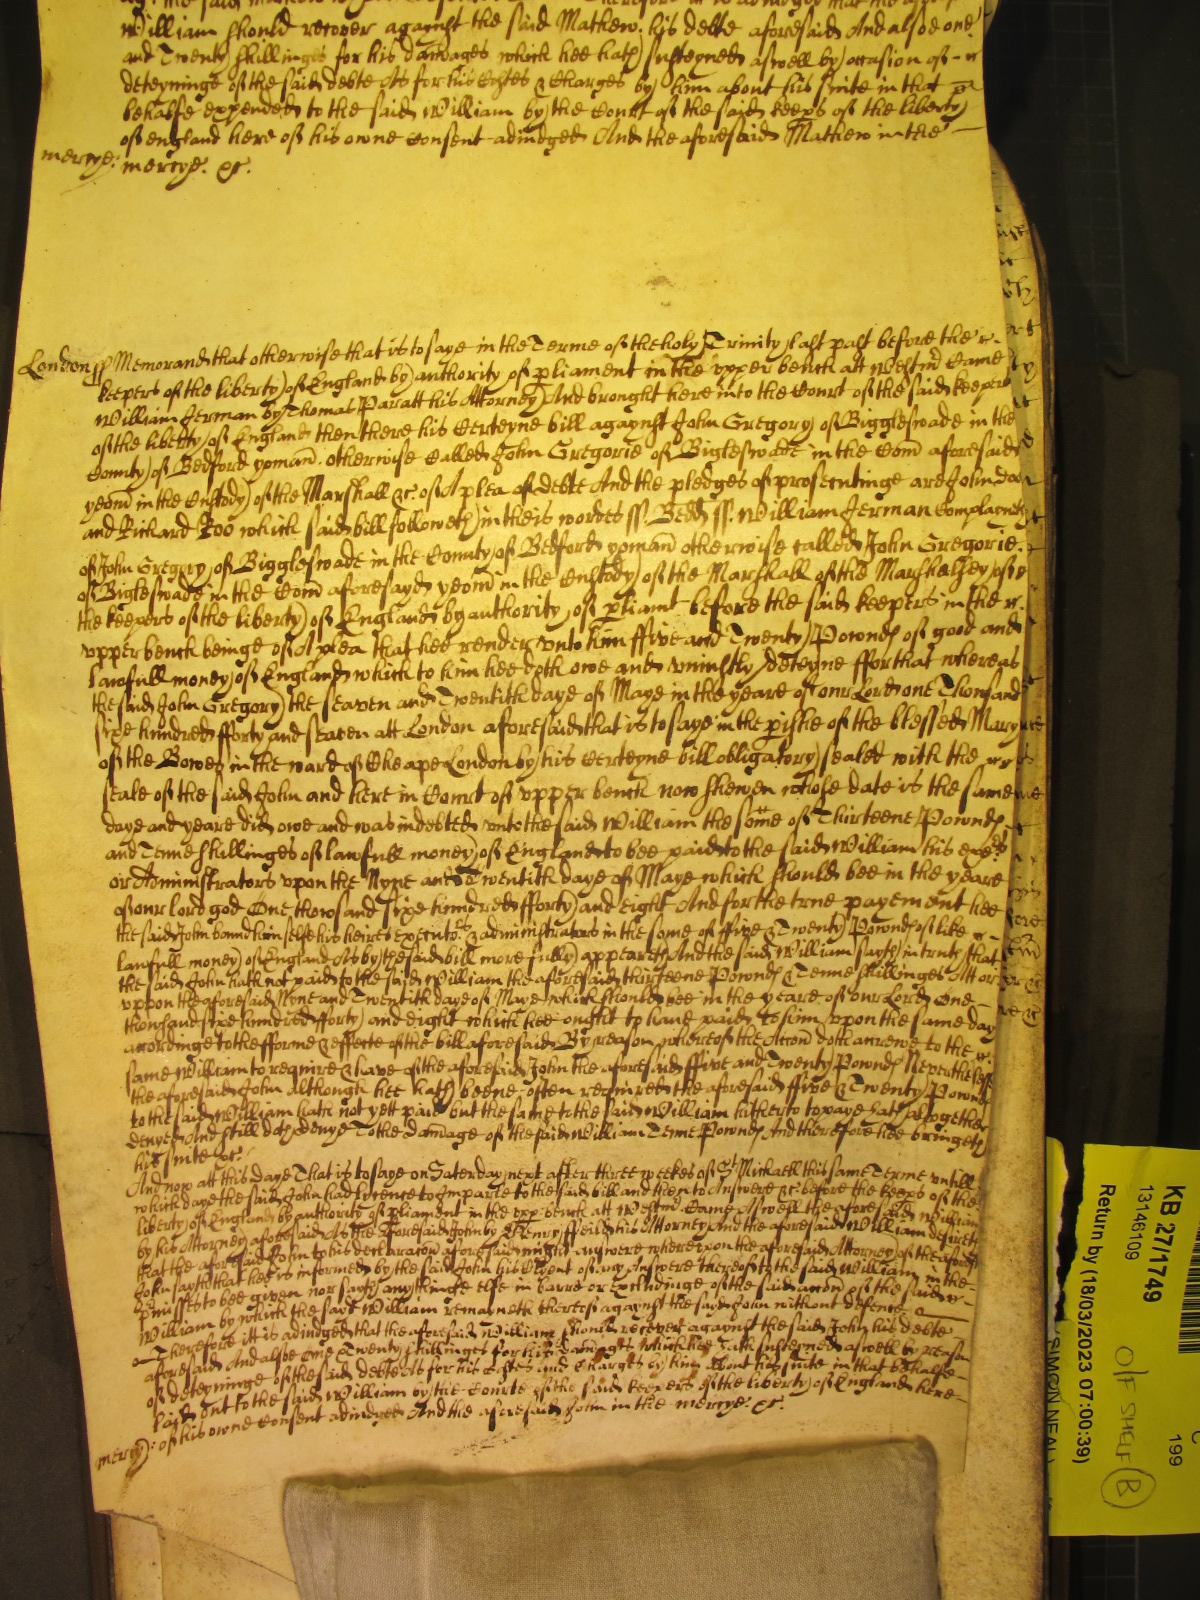 William should recover against the said Mathew his debte aforesaid And alsoe one
and Twenty shillinges for his damages which hee hath susteyned aswell by occasion of
deteyninge of the said debte As for his Costes & Charges by him about his suite in that
behalfe expended to the said William by the Court of the said keeps of the liberty
of England here of his owne Consent adiudged And the aforesaid Mathew in the
mercye: mercye. &c.
London ss Memorand that otherwise that is to saye in the Terme of the holy Trinity last past before the
keepers of the liberty of England by authority of pliament in the vpper bench att Westmr Came
William Jerman by Thomas Parratt his Attorney And brought here into the Court of the said keepers
of the liberty of England then there his Certeyne bill against John Gregory of Biggleswade in the
County of Bedford yoman otherwise Called John Gregorie of Bigleswade in the Com aforesaid
yeom in the Custody of the Marshall &c. of A plea of debte And the pledges of prosecutinge are John doo
and Richard Roo which said bill followeth in theis wordes ss. Bedd ss. William Jerman Complayneth
of John Gregory of Biggleswade in the County of Bedford yoman otherwise called John Gregorie
of Bigleswade in the Com aforesayd yeom in the Custody of the Marshall of the Marshalsey of
the keepers of the liberty of England by authority of pliamt before the said keepers in the
vpper bench beinge of A plea that hee render vnto him ffive and Twenty Pownds of good and
lawfull money of England which to him hee doth owe and vniustly deteyne ffor that whereas
the said John Gregory the seaven and Twentith daye of Maye in the yeare of our Lord one Thousand
sixe hundred fforty and seaven att London aforesaid that is to saye in the pishe of the blessed Mary
of the Bowe in the ward of Cheape London by his Certeyne bill obligatory sealed with the
seale of the said John and here in Court of vpper bench now shewen whose date is the same
daye and yeare did owe and was indebted vnto the said William the some of Thirteene Pownds
and Tenne shillinges of lawfull money of England to bee paid to the said William his
or Administrators vpon the Nyne and Twentith daye of Maye which should bee in the yeare
of our lord god One thowsand sixe hundred fforty and eight And for the true payement hee
the said John bound himselfe his heires executors & administrators in the some of ffive & Twenty Pownds of like
lawfull money of England As by the said bill more fully appeareth And the said William sayth in truth that
the said John hath not paid to the said William the aforesaid thirteene Pownds & Tenne shillinges Att or
vppon the aforesaid Nyne and Twentith daye of Maye which should bee in the yeare of our Lord One
thousand sixe hundred fforty and eight which hee ought to haue paid to him vpon the same day
accordinge to the fforme & effecte of the bill aforesaid By reason whereof the Accon doth accrewe to the
same William to require & have of the aforesaid John the aforesaid ffive and Twenty Pownds Neverthelesse
the aforesaid John although hee hath beene often required the aforesaid ffive & Twenty Pownds
to the said William hath not yett paid but the same to the said William hitherto to paye hath altogether
denyed And still doth denye To the damage of the said William Tenne Pownds And therefore hee bringeth
his suite &c.
And now att this daye That is to saye on Saterday next after three weekes of St Michaell this same Terme vntill
which daye the said John had licence to Imparle to the said bill and then to Answere &c. before the keeps of the
liberty of England by authority of pliament in the vpp bench att Westmr Came Aswell the aforesaid William
by his Attorney aforesaid As the aforesaid John by Henry ffeild his Attorney And the aforesaid William desireth
that the aforesaid John to his declaracon aforesaid might answere wherevpon the aforesaid Attorney of the aforesd
John sayth that hee is informed by the said John his Clyent of any Answere thereof to the said William in the
pmisses to bee given nor sayth anythinge else in barre or Excludinge of the said accon of the said
William by which the sayd William remayneth thereof against the sayd John without defence
Therefore itt is adiudged that the aforesaid William should recover against the said John his debte
aforesaid And alsoe One & twenty shillinges for his damages which hee hath susteyned aswell by reason
of deteyninge of the said debte As for his Costes and Charges by him about his suite in that behalfe
laid out to the said William by the Courte of the said keepers of the liberty of England here
mercy: of his owne Consent adiudged And the aforesaid John in the mercye. &c.
KB 27/1749
13146109
Return by (18/03/2023 07:00:39)
SIMON NEAL
O/F SHELF B
C
199